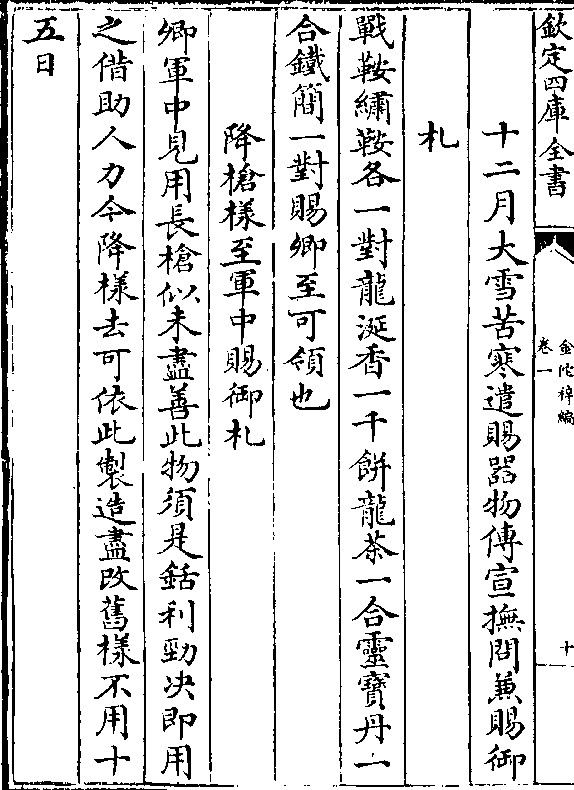 欽定四庫全書
金佗稡編
卷一
十
十二月大雪苦寒遣賜器物傳宣撫問兼賜御
札
戰鞍繡鞍各一對龍涎香一千餅龍茶一合靈寶丹一
合鐵簡一對賜卿至可領也
降槍様至軍中賜御札
卿軍中見用長槍似未盡善此物須是銛利勁决即用
之借助人力今降様去可依此製造盡改舊様不用十
五日